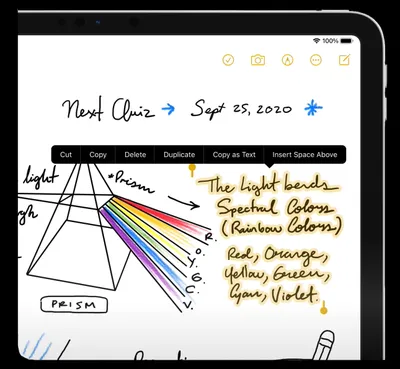 100%
Next Quiz → Sept 25, 2020 *
Cut Copy Delete Duplicate Copy as Text Insert Space Above
light
*Prism
The Light bends
Spectral Colors
(Rainbow Colors)
Red, Orange,
Yellow, Green,
Cyan, Violet.
R.
O.
Y.
G.
C.
V.
PRISM